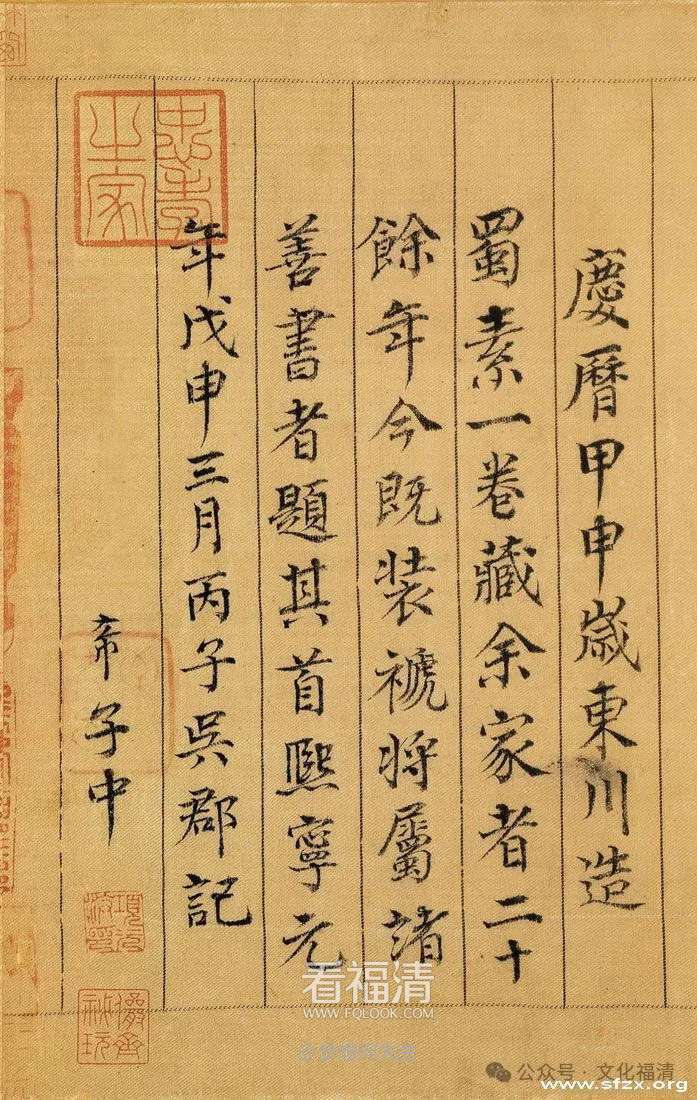 慶曆甲申歲東川造
蜀素一卷藏余家者二十
餘年今既裝褫將屬諸
善書者題其首熙寧元
年戊申三月丙子吳郡記
希子中
忠孝之家
儼齋秘玩
看福清
WWW.FQLOOK.COM
公众号·文化福清
www.sfzx.org